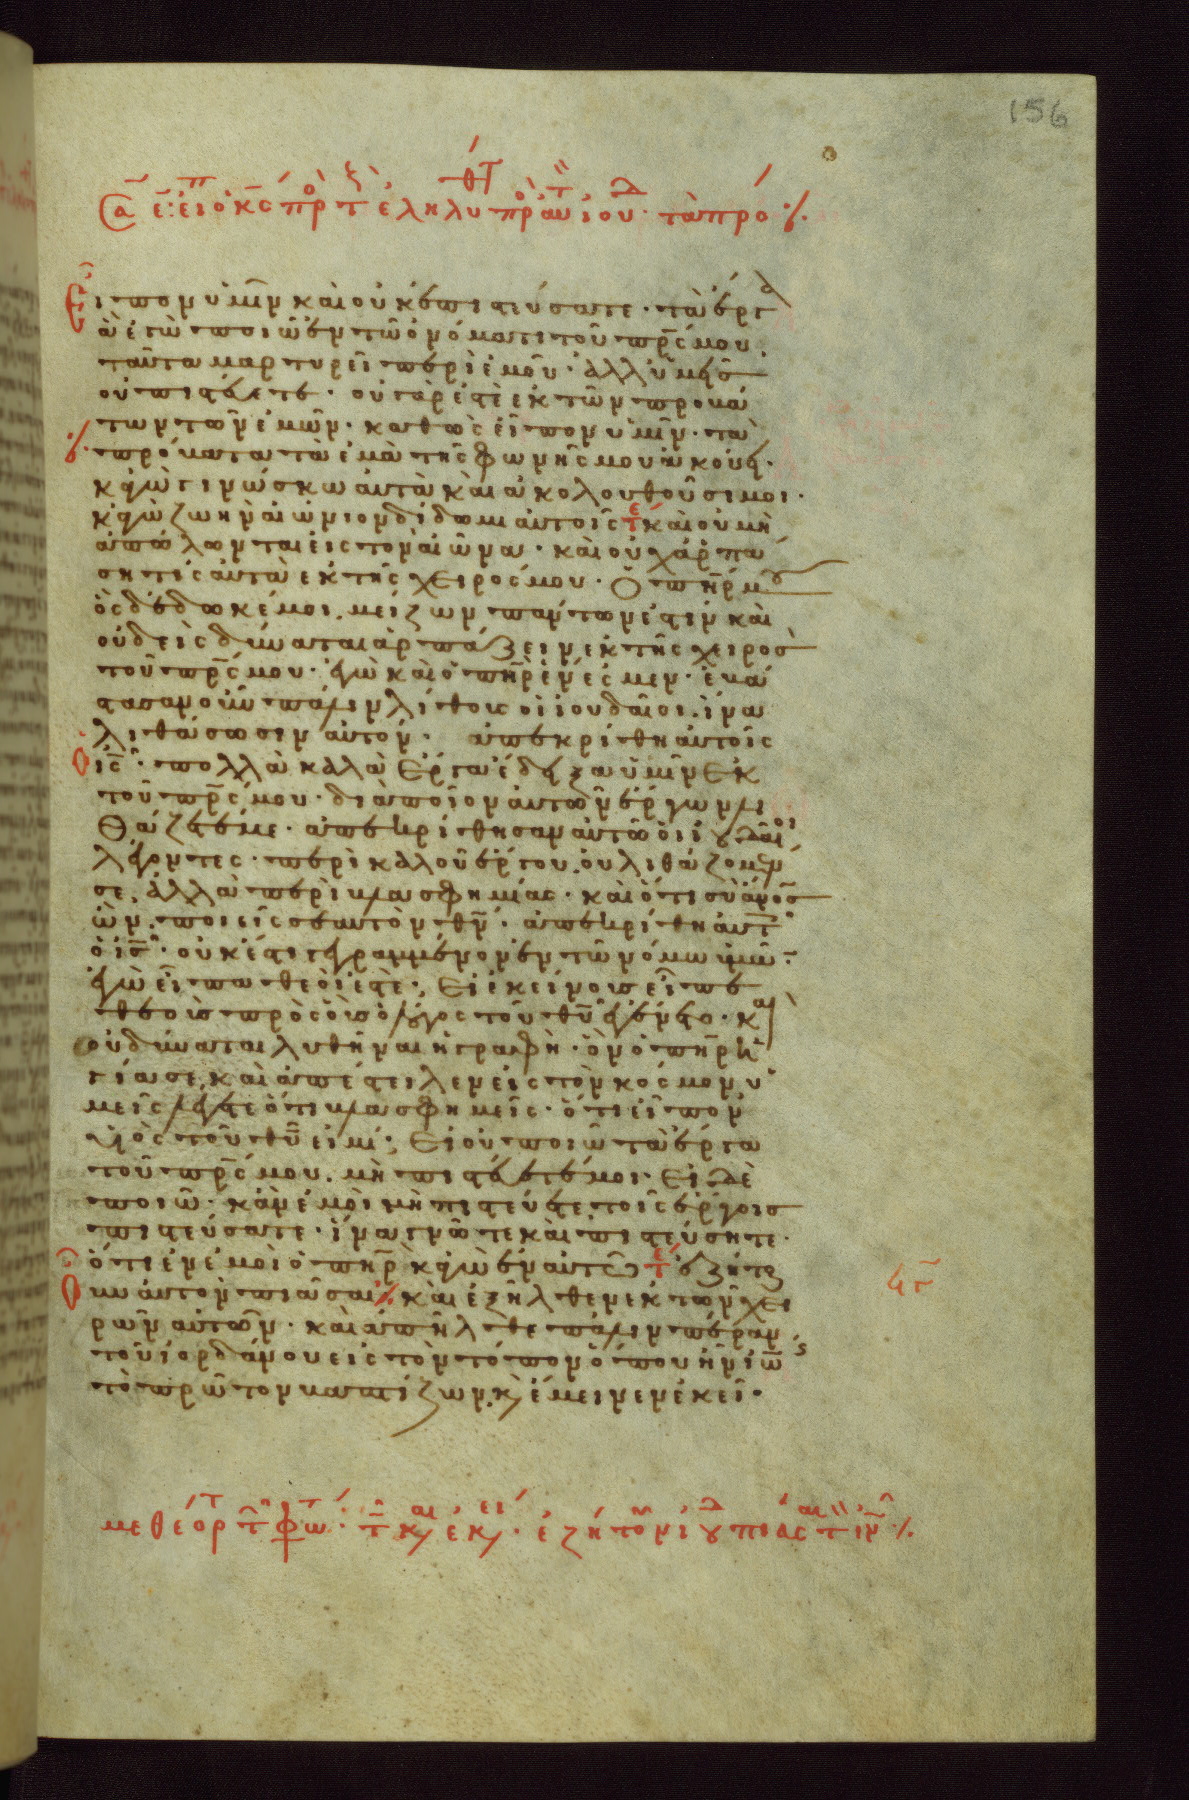 156
εἶπον ὑμῖν καὶ οὐκ ἐπιστεύσατε· τὰ ἔργα
ἃ ἐγὼ ποιῶ ἐν τῶ ὀνόματι τοῦ πρ̅ς μου,
ταῦτα μαρτυρεῖ περὶ ἐμοῦ· ἀλλ' ὑμεῖς
οὐ πιστεύετε· οὐ γάρ ἐστὲ ἐκ τῶν προβά
των τῶν ἐμῶν· καθὼς εἶπον ὑμῖν· τὰ
πρόβατα τὰ ἐμὰ τῆς φωνῆς μου ἀκούει·
κἀγὼ γινώσκω αὐτὰ καὶ ἀκολουθοῦσι μοι·
κἀγὼ ζωὴν αἰώνιον δίδωμι αὐτοῖς τε καὶ οὐ μὴ
ἀπόλωνται εἰς τὸν αἰῶνα· καὶ οὐχ ἁρπά
σῃ τίς αὐτὰ ἐκ τῆς χειρός μου· Ὁ πη̅ρ μου
ὃς δέδωκέ μοι, μείζων πάντων ἐστὶν καὶ
οὐδεὶς δύναται ἁρπάζειν ἐκ τῆς χειρὸς
τοῦ πρ̅ς μου· ἐγὼ καὶ ὁ πη̅ρ ἕν ἐσμεν· ἐβά
στασαν οὖν πάλιν λίθους οἱ ἰουδαῖοι, ἵνα
λιθάσωσιν αὐτόν· ἀπεκρίθη αὐτοῖς
ὁ ι̅ς· πολλὰ καλὰ ἔργα ἔδειξα ὑμῖν ἐκ
τοῦ πρ̅ς μου· διὰ ποῖον αὐτῶν ἔργων λι
θάζετέ με· ἀπεκρίθησαν αὐτῶ οἱ ἰουδαῖοι
λέγοντες· περὶ καλοῦ ἔργου οὐ λιθάζομέν
σε, ἀλλὰ περὶ βλασφημίας· καὶ ὅτι σὺ ἄνο̅ς
ὢν, ποιεῖς σεαυτὸν θν̅· ἀπεκρίθη αὐτ
ὁ ι̅ς· οὐκ ἔστι γεγραμμένον ἐν τῶ νόμω ὑμῶ
ἐγὼ εἶπα θεοί ἐστε; Εἰ ἐκείνους εἶπε
θεοὺς πρὸς οὓς ὁ λόγος τοῦ θυ̅ ἐγένετο· καὶ
οὐ δύναται λυθῆναι ἡ γραφὴ· ὃν ὁ πη̅ρ ἡ
γίασε, καὶ ἀπέστειλεν εἰς τὸν κόσμον ὑ
μεῖς λέγετε ὅτι βλασφημεῖς· ὅτι εἶπον
υἱὸς τοῦ θυ̅ εἰμί; Εἰ οὐ ποιῶ τὰ ἔργα
τοῦ πρ̅ς μου, μὴ πιστεύετέ μοι· Εἰ δὲ
ποιῶ· κἂν ἐμοὶ μὴ πιστεύητε τοῖς ἔργοις
πιστεύσατε· ἵνα γνῶτε καὶ πιστεύσητε
ὅτι ἐν ἐμοὶ ὁ πη̅ρ κἀγὼ ἐν αὐτῶ τε ἐζήτ
υν αὐτὸν πιάσαι καὶ ἐξῆλθεν ἐκ τῶν χει
ρῶν αὐτῶν· καὶ ἀπῆλθε πάλιν πέραν
τοῦ ἰορδάνου εἰς τὸν τόπον ὅπου ἦν ἰω̅
τὸ πρῶτον βαπτίζων, καὶ ἔμεινεν ἐκεῖ·